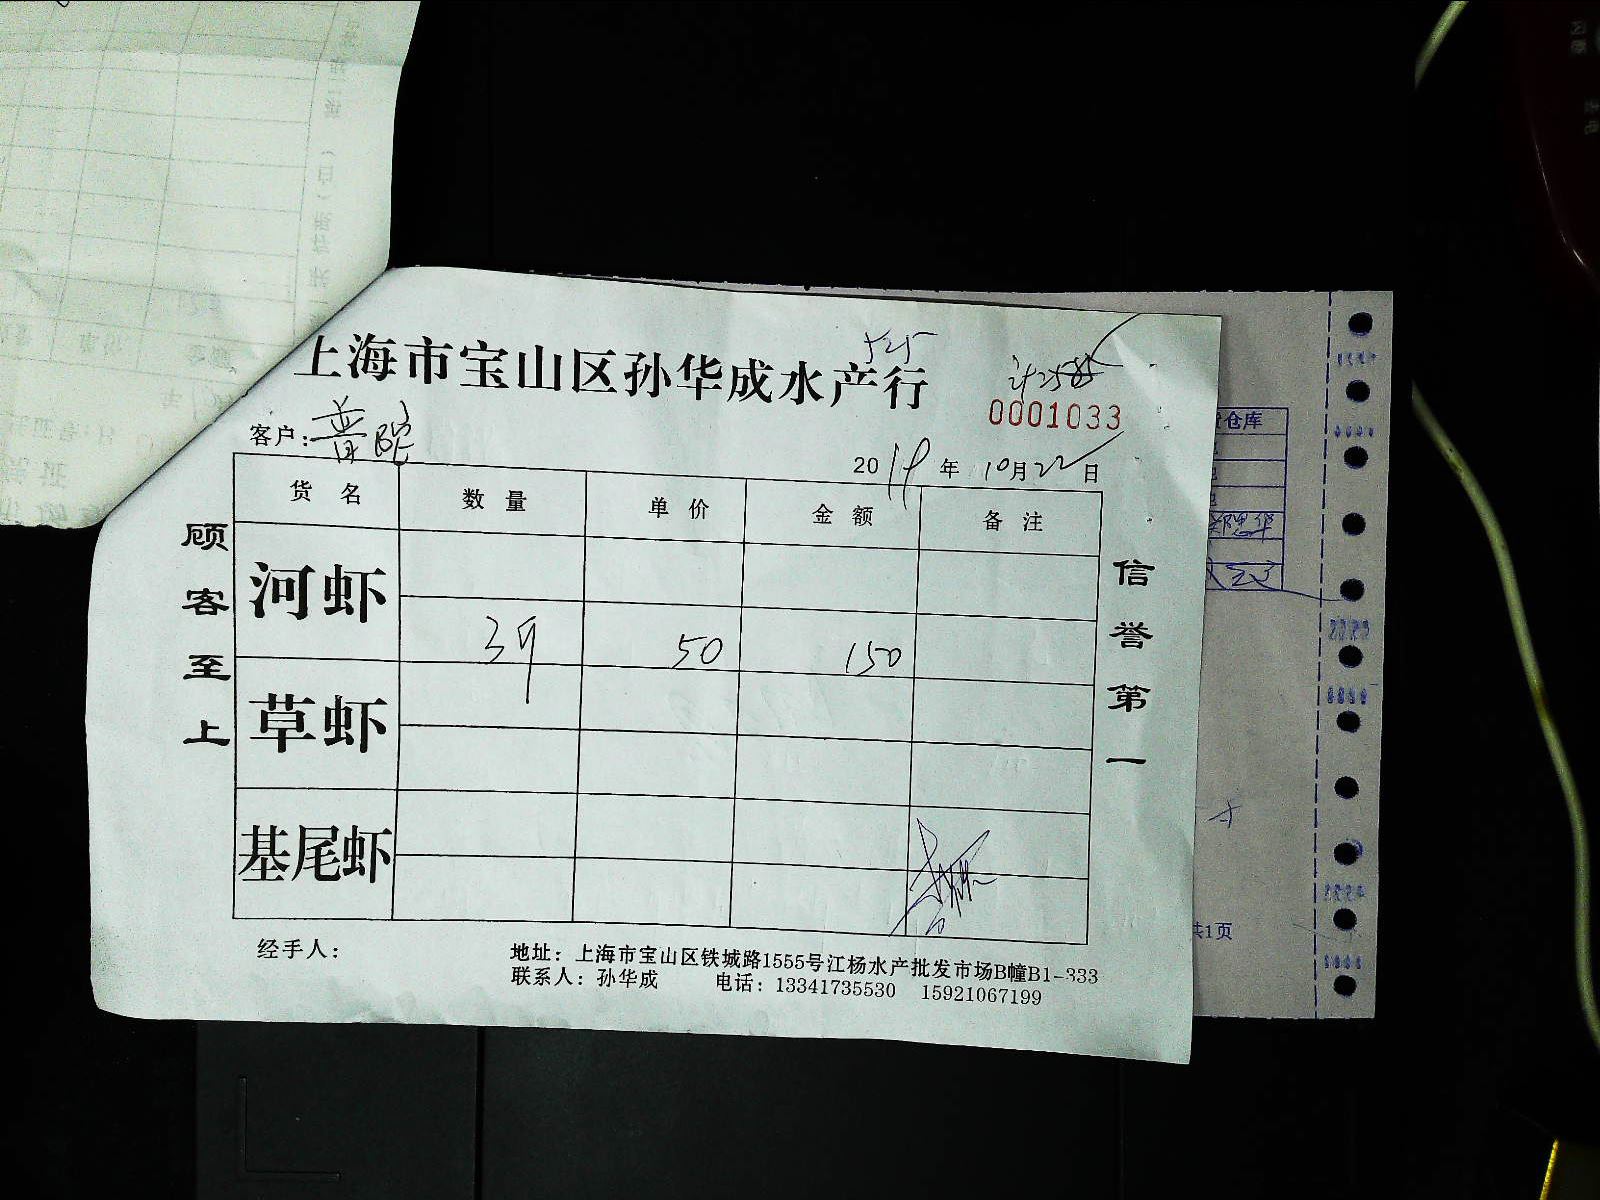 上海市宝山区孙华成水产行
525
计2585
0001033
客户：普陀
2019年10月22日
货名 数量 单价 金额 备注
河虾
3斤 50 150
草虾
基尾虾
顾客至上
信誉第一
经手人：
地址：上海市宝山区铁城路1555号江杨水产批发市场B幢B1-333
联系人：孙华成 电话：13341735530 15921067199
仓库
共1页